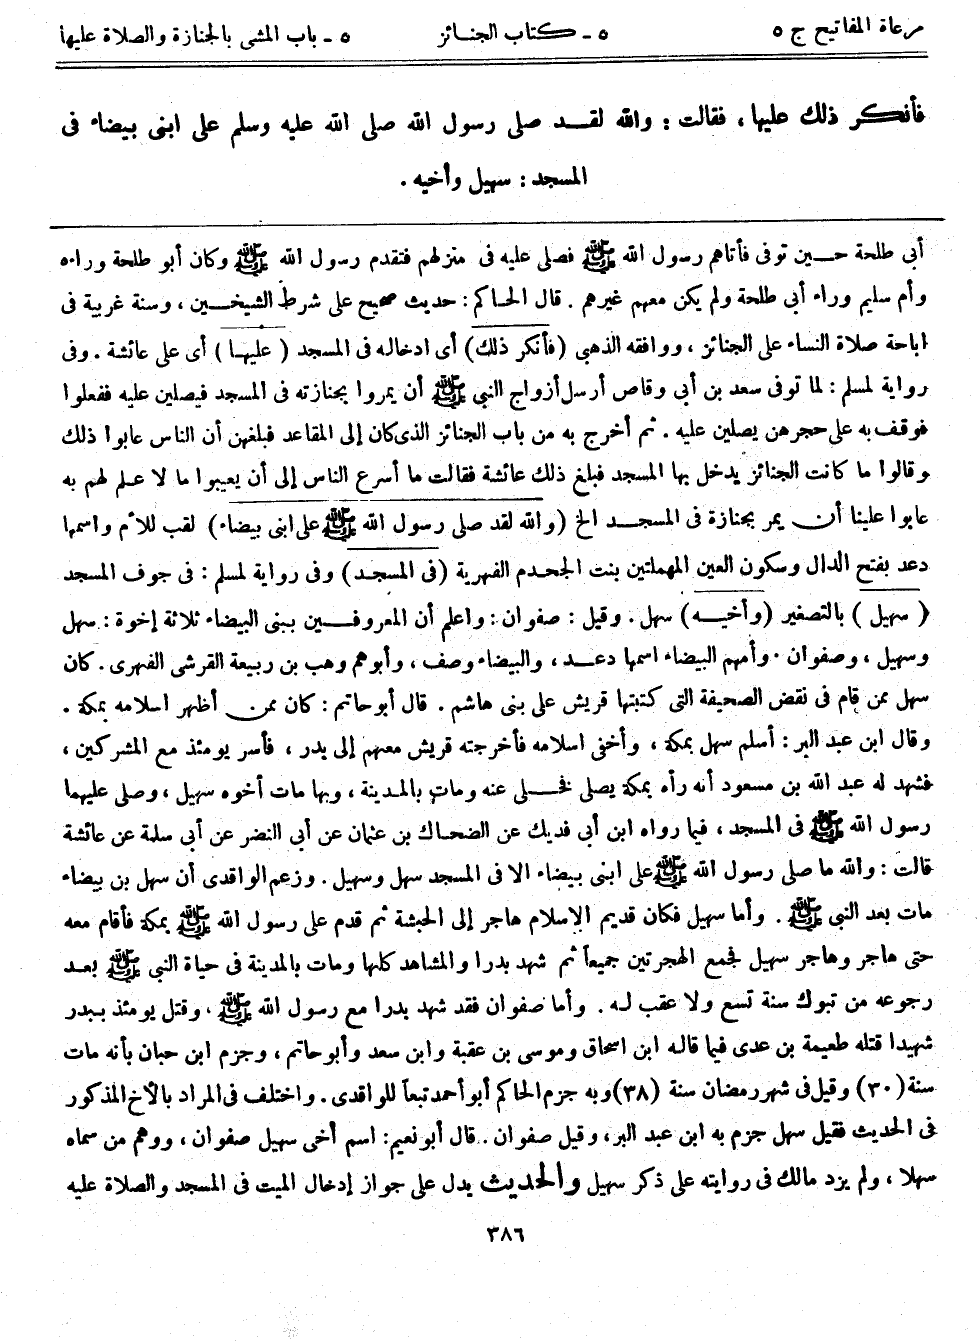 مرعاة المفاتيح ج ٥ ٥ - كتاب الجنائز ٥ - باب المشى بالجنازة والصلاة عليها
فأنكر ذلك عليها، فقالت: والله لقد صلى رسول الله صلى الله عليه وسلم على ابنى بيضاء فى
المسجد: سهيل وأخيه.
أبي طلحة حين توفى فأتاهم رسول الله ﷺ فصلى عليه فى منزلهم فتقدم رسول الله ﷺ وكان أبو طلحة وراءه
وأم سليم وراء أبي طلحة ولم يكن معهم غيرهم. قال الحاكم: حديث صحيح على شرط الشيخين، وسنة غريبة فى
اباحة صلاة النساء على الجنائز، ووافقه الذهبي (فأنكر ذلك) أى ادخاله فى المسجد (عليها) أى على عائشة. وفى
رواية لمسلم: لما توفى سعد بن أبي وقاص أرسل أزواج النبي ﷺ أن يمروا بجنازته فى المسجد فيصلين عليه ففعلوا
فوقف به على حجرهن يصلين عليه. ثم أخرج به من باب الجنائز الذى كان إلى المقاعد فبلغهن أن الناس عابوا ذلك
وقالوا ما كانت الجنائز يدخل بها المسجد فبلغ ذلك عائشة فقالت ما أسرع الناس إلى أن يعيبوا ما لا علم لهم به
عابوا علينا أن يمر بجنازة فى المسجد الخ (والله لقد صلى رسول الله ﷺ على ابنى بيضاء) لقب للأم واسمها
دعد بفتح الدال وسكون العين المهملتين بنت الجحدم الفهرية (فى المسجد) وفى رواية لمسلم: فى جوف المسجد
(سهيل) بالتصغير (وأخيه) سهل. وقيل: صفوان: واعلم أن المعروفين ببنى البيضاء ثلاثة إخوة: سهل
وسهيل، وصفوان. وأمهم البيضاء اسمها دعد، والبيضاء وصف، وأبوهم وهب بن ربيعة القرشى الفهرى. كان
سهل ممن قام فى نقض الصحيفة التى كتبتها قريش على بنى هاشم. قال أبو حاتم: كان ممن أظهر اسلامه بمكة.
وقال ابن عبد البر: أسلم سهل بمكة، وأخفى اسلامه فأخرجته قريش معهم إلى بدر، فأسر يومئذ مع المشركين،
فشهد له عبد الله بن مسعود أنه رآه بمكة يصلى فخلى عنه ومات بالمدينة، وبها مات أخوه سهيل، وصلى عليهما
رسول الله ﷺ فى المسجد، فيما رواه ابن أبي فديك عن الضحاك بن عثمان عن أبي النضر عن أبي سلمة عن عائشة
قالت: والله ما صلى رسول الله ﷺ على ابنى بيضاء الا فى المسجد سهل وسهيل. وزعم الواقدى أن سهل بن بيضاء
مات بعد النبى ﷺ. وأما سهيل فكان قديم الإسلام هاجر إلى الحبشة ثم قدم على رسول الله ﷺ بمكة فأقام معه
حتى هاجر وهاجر سهيل فجمع الهجرتين جميعاً ثم شهد بدرا والمشاهد كلها ومات بالمدينة فى حياة النبى ﷺ بعد
رجوعه من تبوك سنة تسع ولا عقب له. وأما صفوان فقد شهد بدرا مع رسول الله ﷺ، وقتل يومئذ ببدر
شهيدا قتله طعيمة بن عدى فيما قاله ابن اسحاق وموسى بن عقبة وابن سعد وأبو حاتم، وجزم ابن حبان بأنه مات
سنة (٣٠) وقيل فى شهر رمضان سنة (٣٨) وبه جزم الحاكم أبو أحمد تبعاً للواقدى. واختلف فى المراد بالأخ المذكور
فى الحديث فقيل سهل جزم به ابن عبد البر، وقيل صفوان. قال أبو نعيم: اسم أخى سهيل صفوان، ووهم من سماه
سهلا، ولم يزد مالك فى روايته على ذكر سهيل والحديث يدل على جواز إدخال الميت فى المسجد والصلاة عليه
٣٨٦